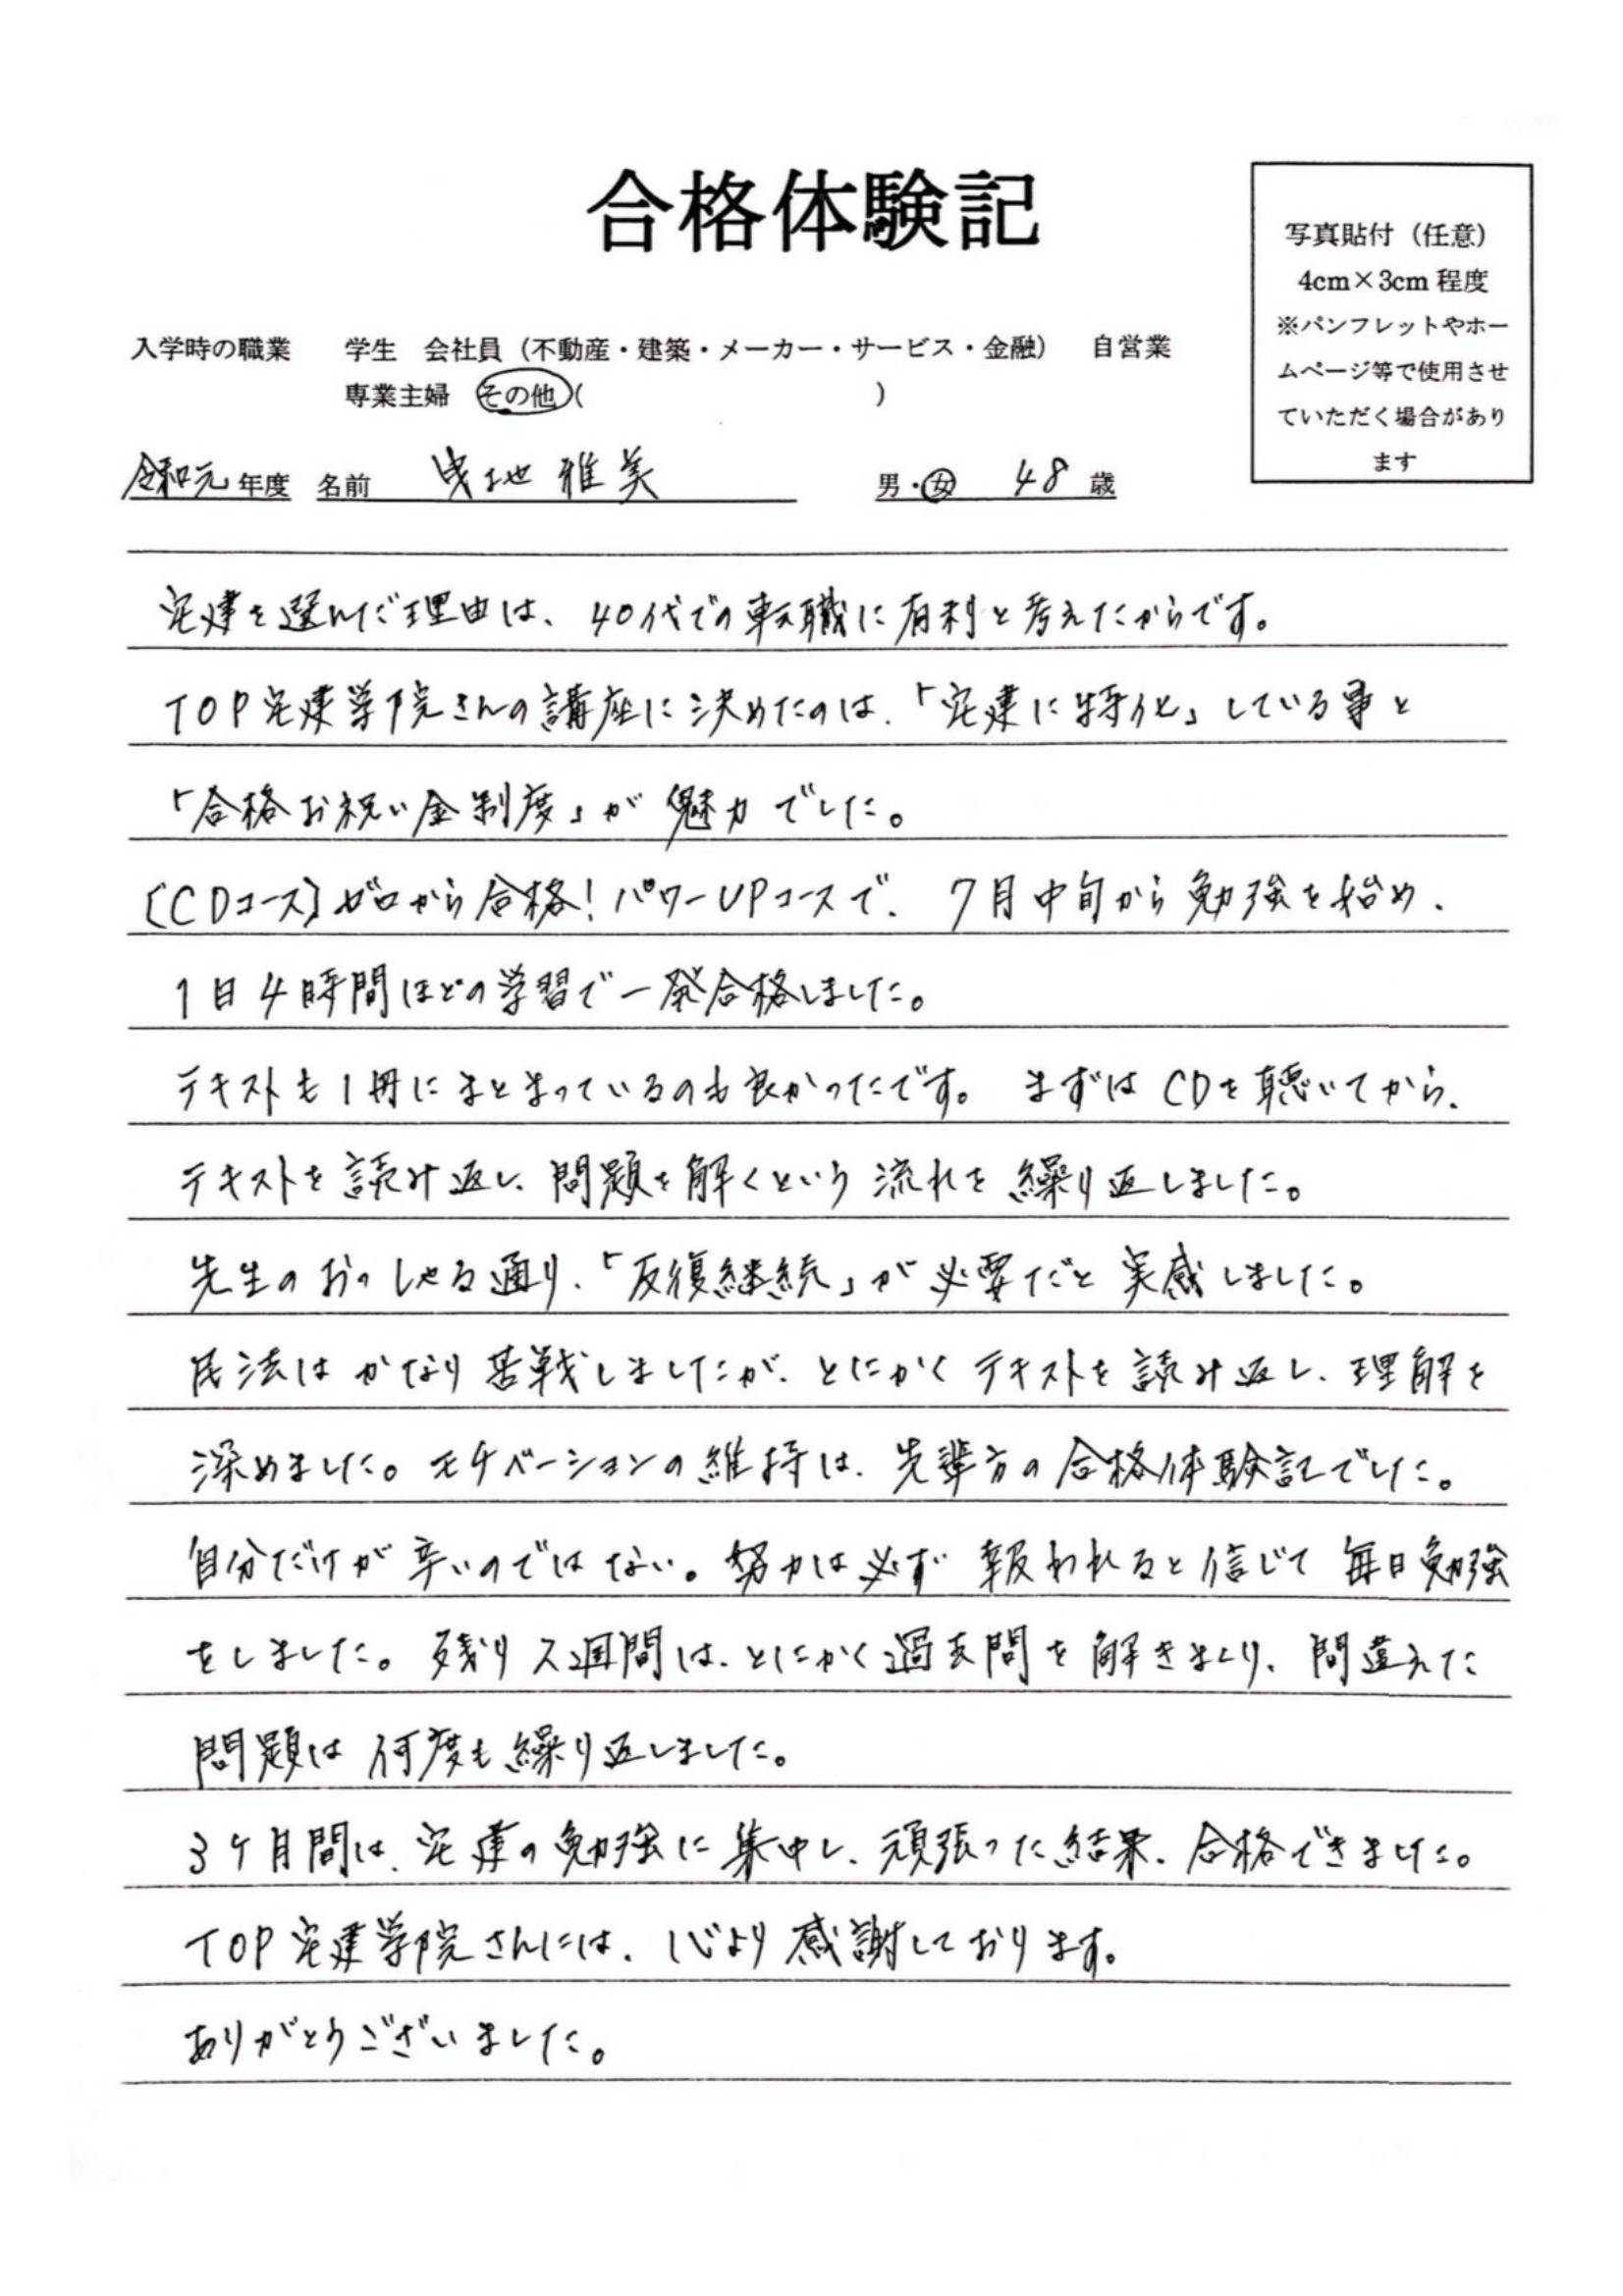 合格体験記
写真貼付（任意）
4cm×3cm 程度
※パンフレットやホー
ムページ等で使用させ
ていただく場合があり
ます
入学時の職業　学生　会社員（不動産・建築・メーカー・サービス・金融）　自営業
専業主婦　その他(　　　)
令和元年度　名前　曵地 雅美　男・女　48歳
宅建を選んだ理由は、40代での転職に有利と考えたからです。
TOP宅建学院さんの講座に決めたのは、「宅建に特化」している事と
「合格お祝い金制度」が魅力でした。
〔CDコース〕ゼロから合格！パワーUPコースで、7月中旬から勉強を始め、
1日4時間ほどの学習で一発合格しました。
テキストも1冊にまとまっているのも良かったです。まずはCDを聴いてから、
テキストを読み返し、問題を解くという流れを繰り返しました。
先生のおっしゃる通り、「反復継続」が必要だと実感しました。
民法はかなり苦戦しましたが、とにかくテキストを読み返し、理解を
深めました。モチベーションの維持は、先輩方の合格体験記でした。
自分だけが辛いのではない。努力は必ず報われると信じて毎日勉強
をしました。残り2週間は、とにかく過去問を解きまくり、間違えた
問題は何度も繰り返しました。
3ヶ月間は、宅建の勉強に集中し、頑張った結果、合格できました。
TOP宅建学院さんには、心より感謝しております。
ありがとうございました。